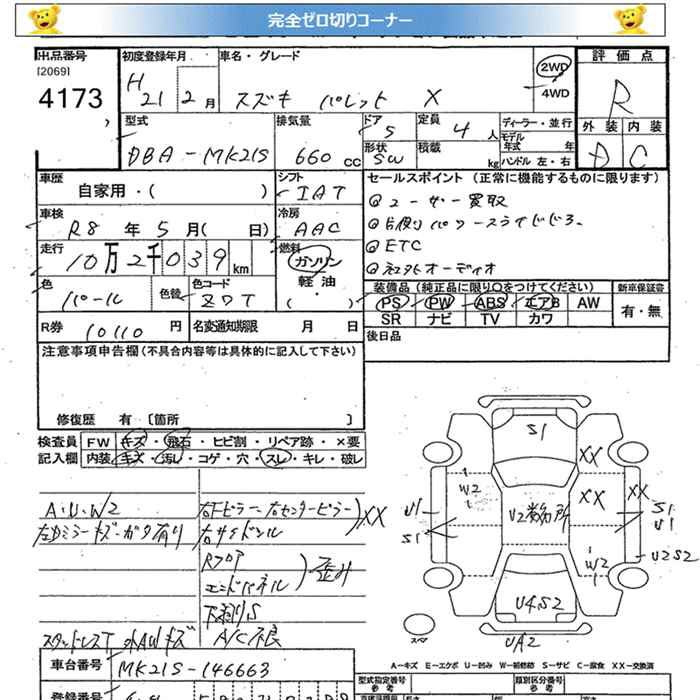 完全ゼロ切りコーナー
出品番号 初度登録年月 車名・グレード 評価点
[2069]
4173
H 21年 2月 スズキ パレット X 2WD 4WD R
外装 内装
D C
型式 排気量 ドア 定員 ディーラー・並行
DBA-MK21S 660cc 5 4人 モデル年式 年
形状 積載
SW kg ハンドル 左・右
車歴 シフト セールスポイント(正常に機能するものに限ります)
自家用・( ) IAT
車検 冷房
R8年 5月( 日) AAC
走行 燃料
10万2千039km ガソリン 軽油・( )
@ユーザー買取
@片側パワースライドドア
@ETC
@社外オーディオ
色 色替 色コード
パール ZWT
装備品(純正品に限り○をつけてください) 新車保証書
PS PW ABS エアB AW 有・無
SR ナビ TV カワ
R券 10110円 名変通知期限 月 日
後日品
注意事項申告欄(不具合内容等は具体的に記入して下さい)
修復歴 有〔箇所 〕
検査員 FW キズ・飛石・ヒビ割・リペア跡・×要
記入欄 内装 キズ・汚れ・コゲ・穴・スレ・キレ・破レ
A・U・W2
右Fピラー 右センターピラー XX
右サイドシル
Rフロア
エンドパネル 歪み
下廻りS
スタッドレスT 外AWキズ A/C不良
S1
XX
W2
XX
XX
U2数カ所
U1
S1
S1
U1
W2
U2S2
U4S2
UA2
スペア
A-キズ E-エクボ U-凹み W-補修跡 S-サビ C-腐食 XX-交換済
車台番号 MK21S-146663
型式指定番号 類別区分番号
参考 参考
登録番号